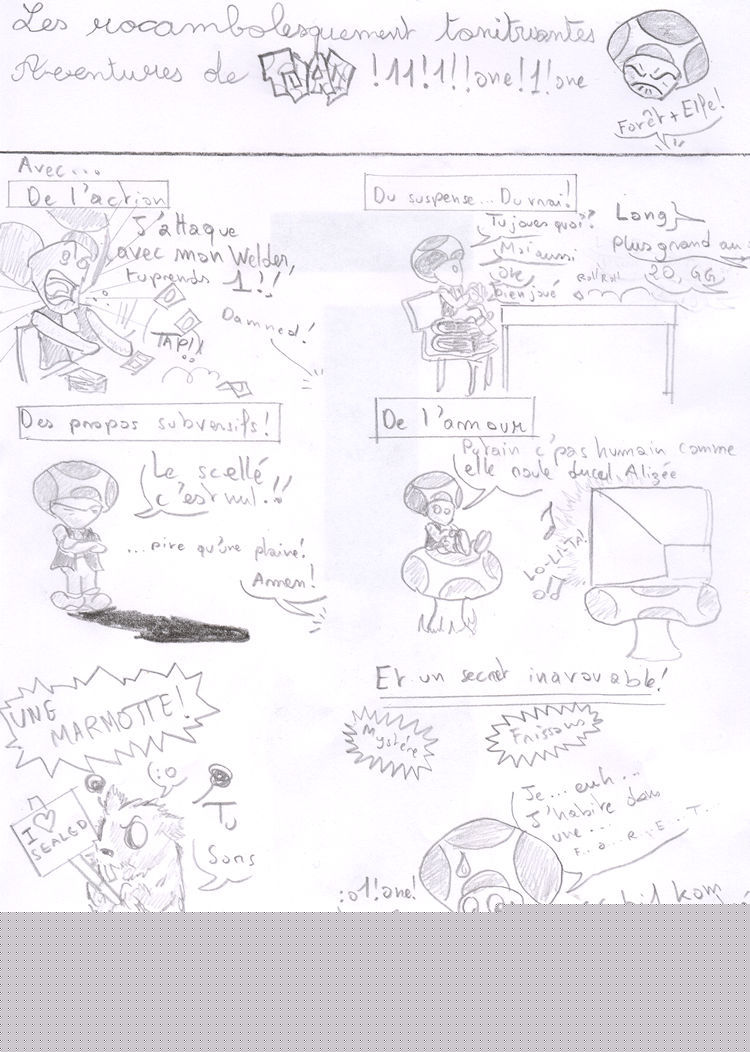 Les rocambolesquement tonitruantes
Aventures de !11!1!!one!1!one
Forêt + Elfe!
Avec...
De l'action
J'attaque
avec mon Welder,
tu prends 1!!
Damned!
TAP!!
Du suspense... Du vrai!
Tu joues quoi??
Moi aussi
Ok
Bien joué
Roll Roll
Long
plus grand au
20, GG
Des propos subversifs!
Le scellé
c'est nul!!
...pire qu'une plaine!
Amen!
De l'amour
Putain c'pas humain comme
elle roule ducul, Alizée
LO-LI-TA!
UNE
MARMOTTE!
:o
I ♡
SEALED
Tu
Sors
Et un secret inavouable!
Mystère
Frissons
Je... euh...
J'habite dans
une...
F..o..R..E..T...
:o1!one!